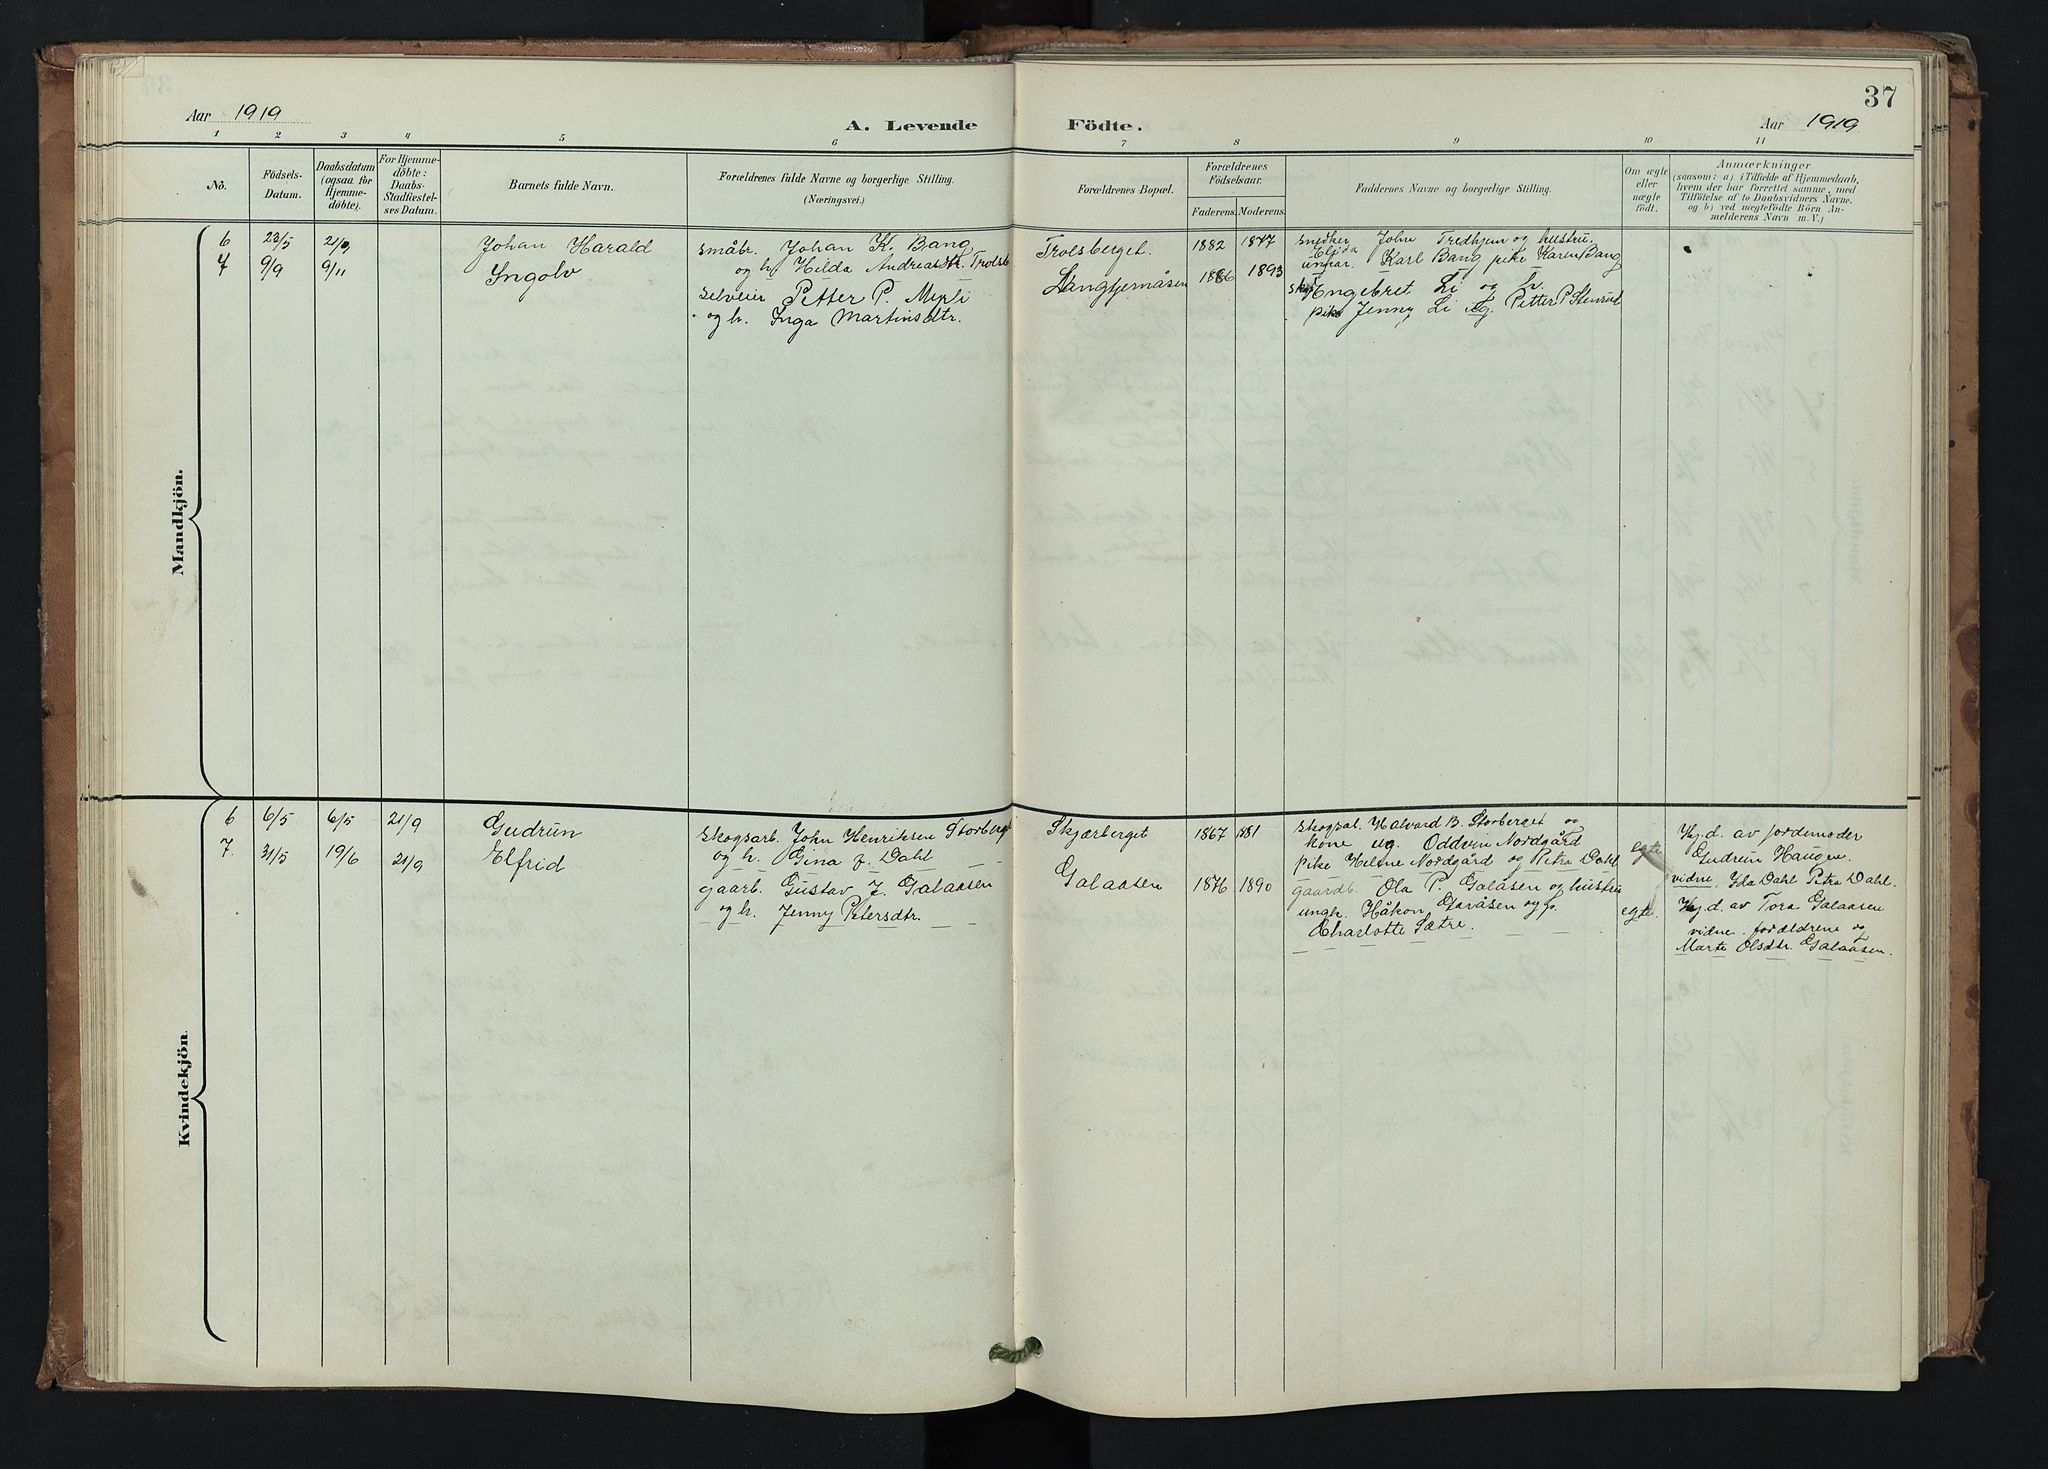 37
Aar 1919
A. Levende Födte.
Aar 1919
1 2 3 4 5 6 7 8 9 10 11
No.
Födsels-Datum.
Daabsdatum (ogsaa for Hjemme-døbte).
For Hjemme-døbte: Daabs-Stadfæstel-ses Datum.
Barnets fulde Navn.
Forældrenes fulde Navne og borgerlige Stilling.
(Næringsvei.)
Forældrenes Bopæl.
Forældrenes Fødselsaar.
Faderens. Moderens.
Faddernes Navne og borgerlige Stilling.
Om ægte eller uægte født.
Anmærkninger
(saasom: a) i Tilfælde af Hjemmedaab,
hvem der har forrettet samme, med
Tilføielse af to Daabsvidners Navne.
og b) ved uægtefødte Börn An-
melderens Navn m. V.)
Mandkjön.
6 23/5 21/9 Johan Harald
småbr. Johan K. Bang
og h. Hilda Andreasdtr. Trolsb
Trolsberget. 1882 1877
snedker John Tredhjem og hustru.
Elida
unkar. Karl Bang pike Karen Bang
7 9/9 9/11 Ingolv
selveier Petter P. Myrli
og h. Inga Martinsdtr.
Langtjernåsen 1886 1893
Engebret Li og h.
pike Jenny Li ug. Petter P Stenrud
Kvindekjön.
6 6/5 6/5 21/9 Gudrun
skogsarb. John Henriksen Storberget
og h. Gina J. Dahl
Skjærberget 1867 1881
skogsal. Halvard B. Storberget og
kone ug. Oddvin Nordgård
pike Helene Nordgård og Petra Dahl
egte
Hj.d. av jordemoder
Gudrun Haugen.
vidne. Ida Dahl Petra Dahl.
7. 31/5 19/6 21/9 Elfrid
gaarb. Gustav J. Galaasen
og h. Jenny Petersdtr.
Galaasen 1876 1890
gaardb. Ola P. Galåsen og hustru
ungk. Håkon Garåsen og p.
Charlotte Sætre.
egte.
Hj.d. av Tora Galaasen
vidne. forældrene og
Marte Olsdtr. Galaasen.